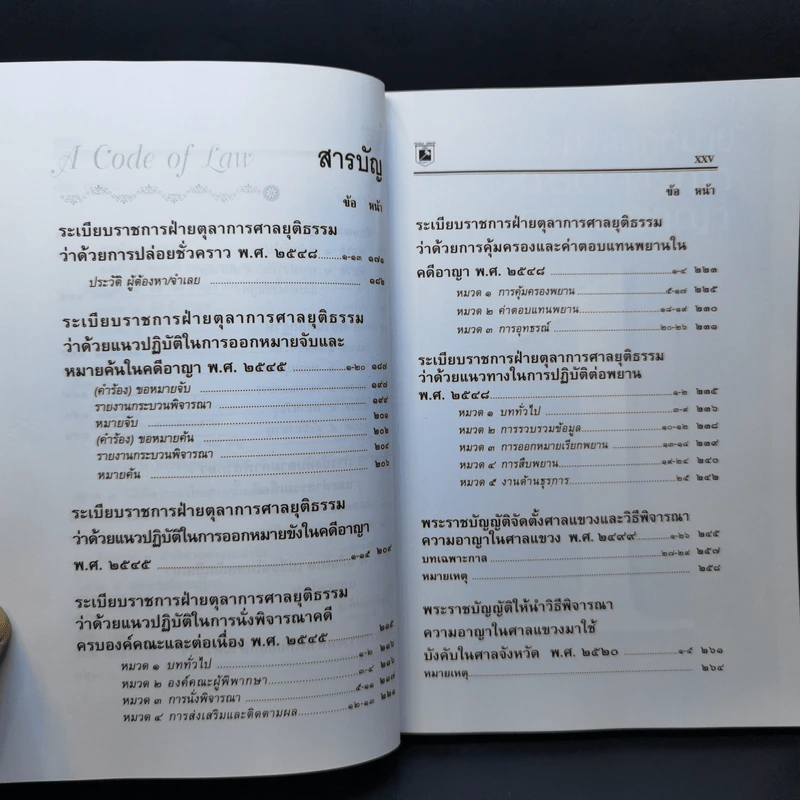 A Code of Law สารบัญ
ข้อ หน้า
ระเบียบราชการฝ่ายตุลาการศาลยุติธรรม
ว่าด้วยการปล่อยชั่วคราว พ.ศ. ๒๕๔๘ ๑-๑๓ ๑๗๑
ประวัติ ผู้ต้องหา/จำเลย ๑๘๒
ระเบียบราชการฝ่ายตุลาการศาลยุติธรรม
ว่าด้วยแนวปฏิบัติในการออกหมายจับและ
หมายค้นในคดีอาญา พ.ศ. ๒๕๔๕ ๑-๒๐ ๑๘๗
(คำร้อง) ขอหมายจับ ๑๙๗
รายงานกระบวนพิจารณา ๑๙๙
หมายจับ ๒๐๑
(คำร้อง) ขอหมายค้น ๒๐๒
รายงานกระบวนพิจารณา ๒๐๔
หมายค้น ๒๐๖
ระเบียบราชการฝ่ายตุลาการศาลยุติธรรม
ว่าด้วยแนวปฏิบัติในการออกหมายขังในคดีอาญา
พ.ศ. ๒๕๔๕ ๑-๑๕ ๒๐๙
ระเบียบราชการฝ่ายตุลาการศาลยุติธรรม
ว่าด้วยแนวปฏิบัติในการนั่งพิจารณาคดี
ครบองค์คณะและต่อเนื่อง พ.ศ. ๒๕๔๕ ๒๑๕
หมวด ๑ บททั่วไป ๑-๒ ๒๑๖
หมวด ๒ องค์คณะผู้พิพากษา ๓-๔ ๒๑๖
หมวด ๓ การนั่งพิจารณา ๕-๑๑ ๒๑๗
หมวด ๔ การส่งเสริมและติดตามผล ๑๒-๑๓ ๒๒๑
XXV
ข้อ หน้า
ระเบียบราชการฝ่ายตุลาการศาลยุติธรรม
ว่าด้วยการคุ้มครองและค่าตอบแทนพยานใน
คดีอาญา พ.ศ. ๒๕๔๘ ๑-๔ ๒๒๓
หมวด ๑ การคุ้มครองพยาน ๕-๑๗ ๒๒๕
หมวด ๒ ค่าตอบแทนพยาน ๑๘-๑๙ ๒๓๐
หมวด ๓ การอุทธรณ์ ๒๐-๒๖ ๒๓๑
ระเบียบราชการฝ่ายตุลาการศาลยุติธรรม
ว่าด้วยแนวทางในการปฏิบัติต่อพยาน
พ.ศ. ๒๕๔๘ ๑-๒ ๒๓๕
หมวด ๑ บททั่วไป ๓-๙ ๒๓๖
หมวด ๒ การรวบรวมข้อมูล ๑๐-๑๒ ๒๓๘
หมวด ๓ การออกหมายเรียกพยาน ๑๓-๑๘ ๒๓๙
หมวด ๔ การสืบพยาน ๑๙-๒๔ ๒๔๐
หมวด ๕ งานด้านธุรการ ๒๕ ๒๔๒
พระราชบัญญัติจัดตั้งศาลแขวงและวิธีพิจารณา
ความอาญาในศาลแขวง พ.ศ. ๒๔๙๙ ๑-๒๖ ๒๔๕
บทเฉพาะกาล ๒๗-๒๙ ๒๕๗
หมายเหตุ ๒๕๘
พระราชบัญญัติให้นำวิธีพิจารณา
ความอาญาในศาลแขวงมาใช้
บังคับในศาลจังหวัด พ.ศ. ๒๕๒๐ ๑-๕ ๒๖๑
หมายเหตุ ๒๖๔